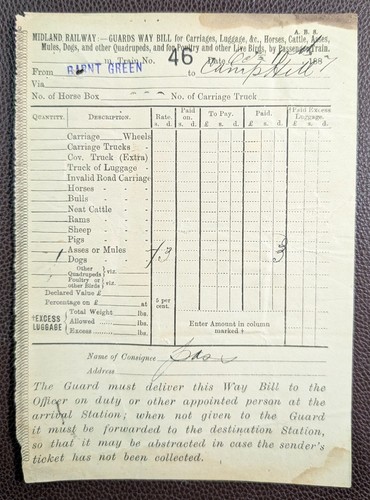 A. B. S.
MIDLAND RAILWAY.—GUARDS WAY BILL for Carriages, Luggage, &c., Horses, Cattle, Asses,
Mules, Dogs, and other Quadrupeds, and for Poultry and other Live Birds, by Passenger Train.
m Train No. 46 Date Oct 188
From BARNT GREEN to Camp Hill
Via
No. of Horse Box No. of Carriage Truck
QUANTITY. DESCRIPTION. Rate. Paid on. To Pay. Paid. †Paid Excess Luggage.
s. d. s. d. £ s. d. £ s. d. £ s. d.
Carriage Wheels
Carriage Trucks
Cov. Truck (Extra)
Truck of Luggage
Invalid Road Carriage
Horses
Bulls
Neat Cattle
Rams
Sheep
Pigs
Asses or Mules
1 Dogs /3 3
Other Quadrupeds viz.
Poultry or other Birds viz.
Declared Value £
Percentage on £ at 5 per cent.
†EXCESS LUGGAGE
Total Weight lbs.
Allowed lbs.
Excess lbs.
Enter Amount in column marked †
Name of Consignee
Address
The Guard must deliver this Way Bill to the
Officer on duty or other appointed person at the
arrival Station; when not given to the Guard
it must be forwarded to the destination Station,
so that it may be abstracted in case the sender's
ticket has not been collected.